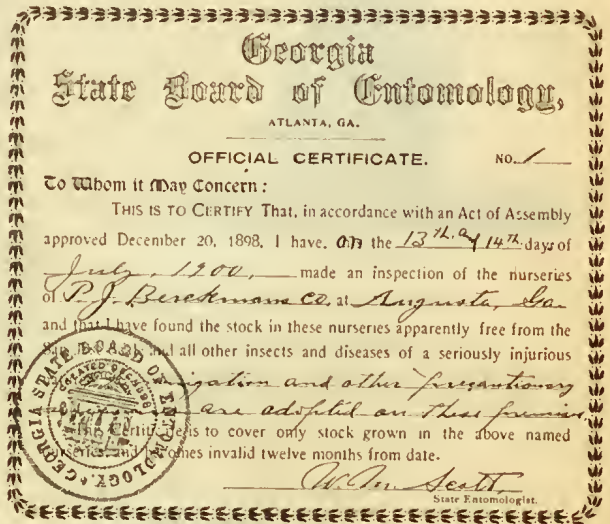 Georgia
State Board of Entomology,
ATLANTA, GA.
OFFICIAL CERTIFICATE. NO. 1
To Whom it May Concern:
THIS IS TO CERTIFY That, in accordance with an Act of Assembly
approved December 20, 1898, I have, on the 13th & 14th days of
July, 1900, made an inspection of the nurseries
of P. J. Berckmans Co. at Augusta, Ga.
and that I have found the stock in these nurseries apparently free from the
and all other insects and diseases of a seriously injurious
and other precautionary
are adopted on these premises.
This Certificate is to cover only stock grown in the above named
nurseries, and becomes invalid twelve months from date.
W. M. Scott
State Entomologist.
GEORGIA STATE BOARD OF ENTOMOLOGY.